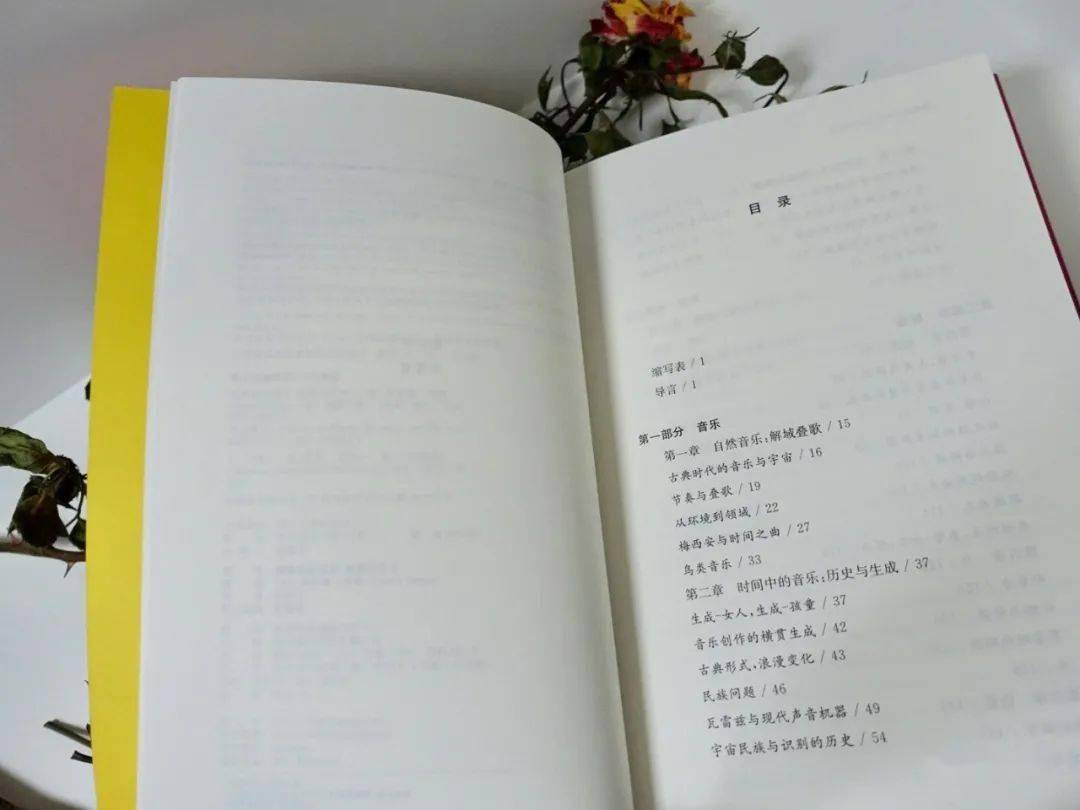 目 录
缩写表 / 1
导言 / 1
第一部分 音乐
第一章 自然音乐：解域叠歌 / 15
古典时代的音乐与宇宙 / 16
节奏与叠歌 / 19
从环境到领域 / 22
梅西安与时间之曲 / 27
鸟类音乐 / 33
第二章 时间中的音乐：历史与生成 / 37
生成-女人，生成-孩童 / 37
音乐创作的横贯生成 / 42
古典形式，浪漫变化 / 43
民族问题 / 46
瓦雷兹与现代声音机器 / 49
宇宙民族与识别的历史 / 54